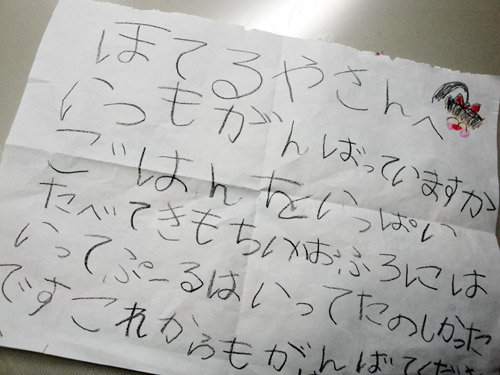 ほてるやさんへ
いつもがんばっていますか
ごはんをいっぱい
たべてきもちいいおふろには
いってぷーるはいってたのしかった
ですこれからもがんばてくださ